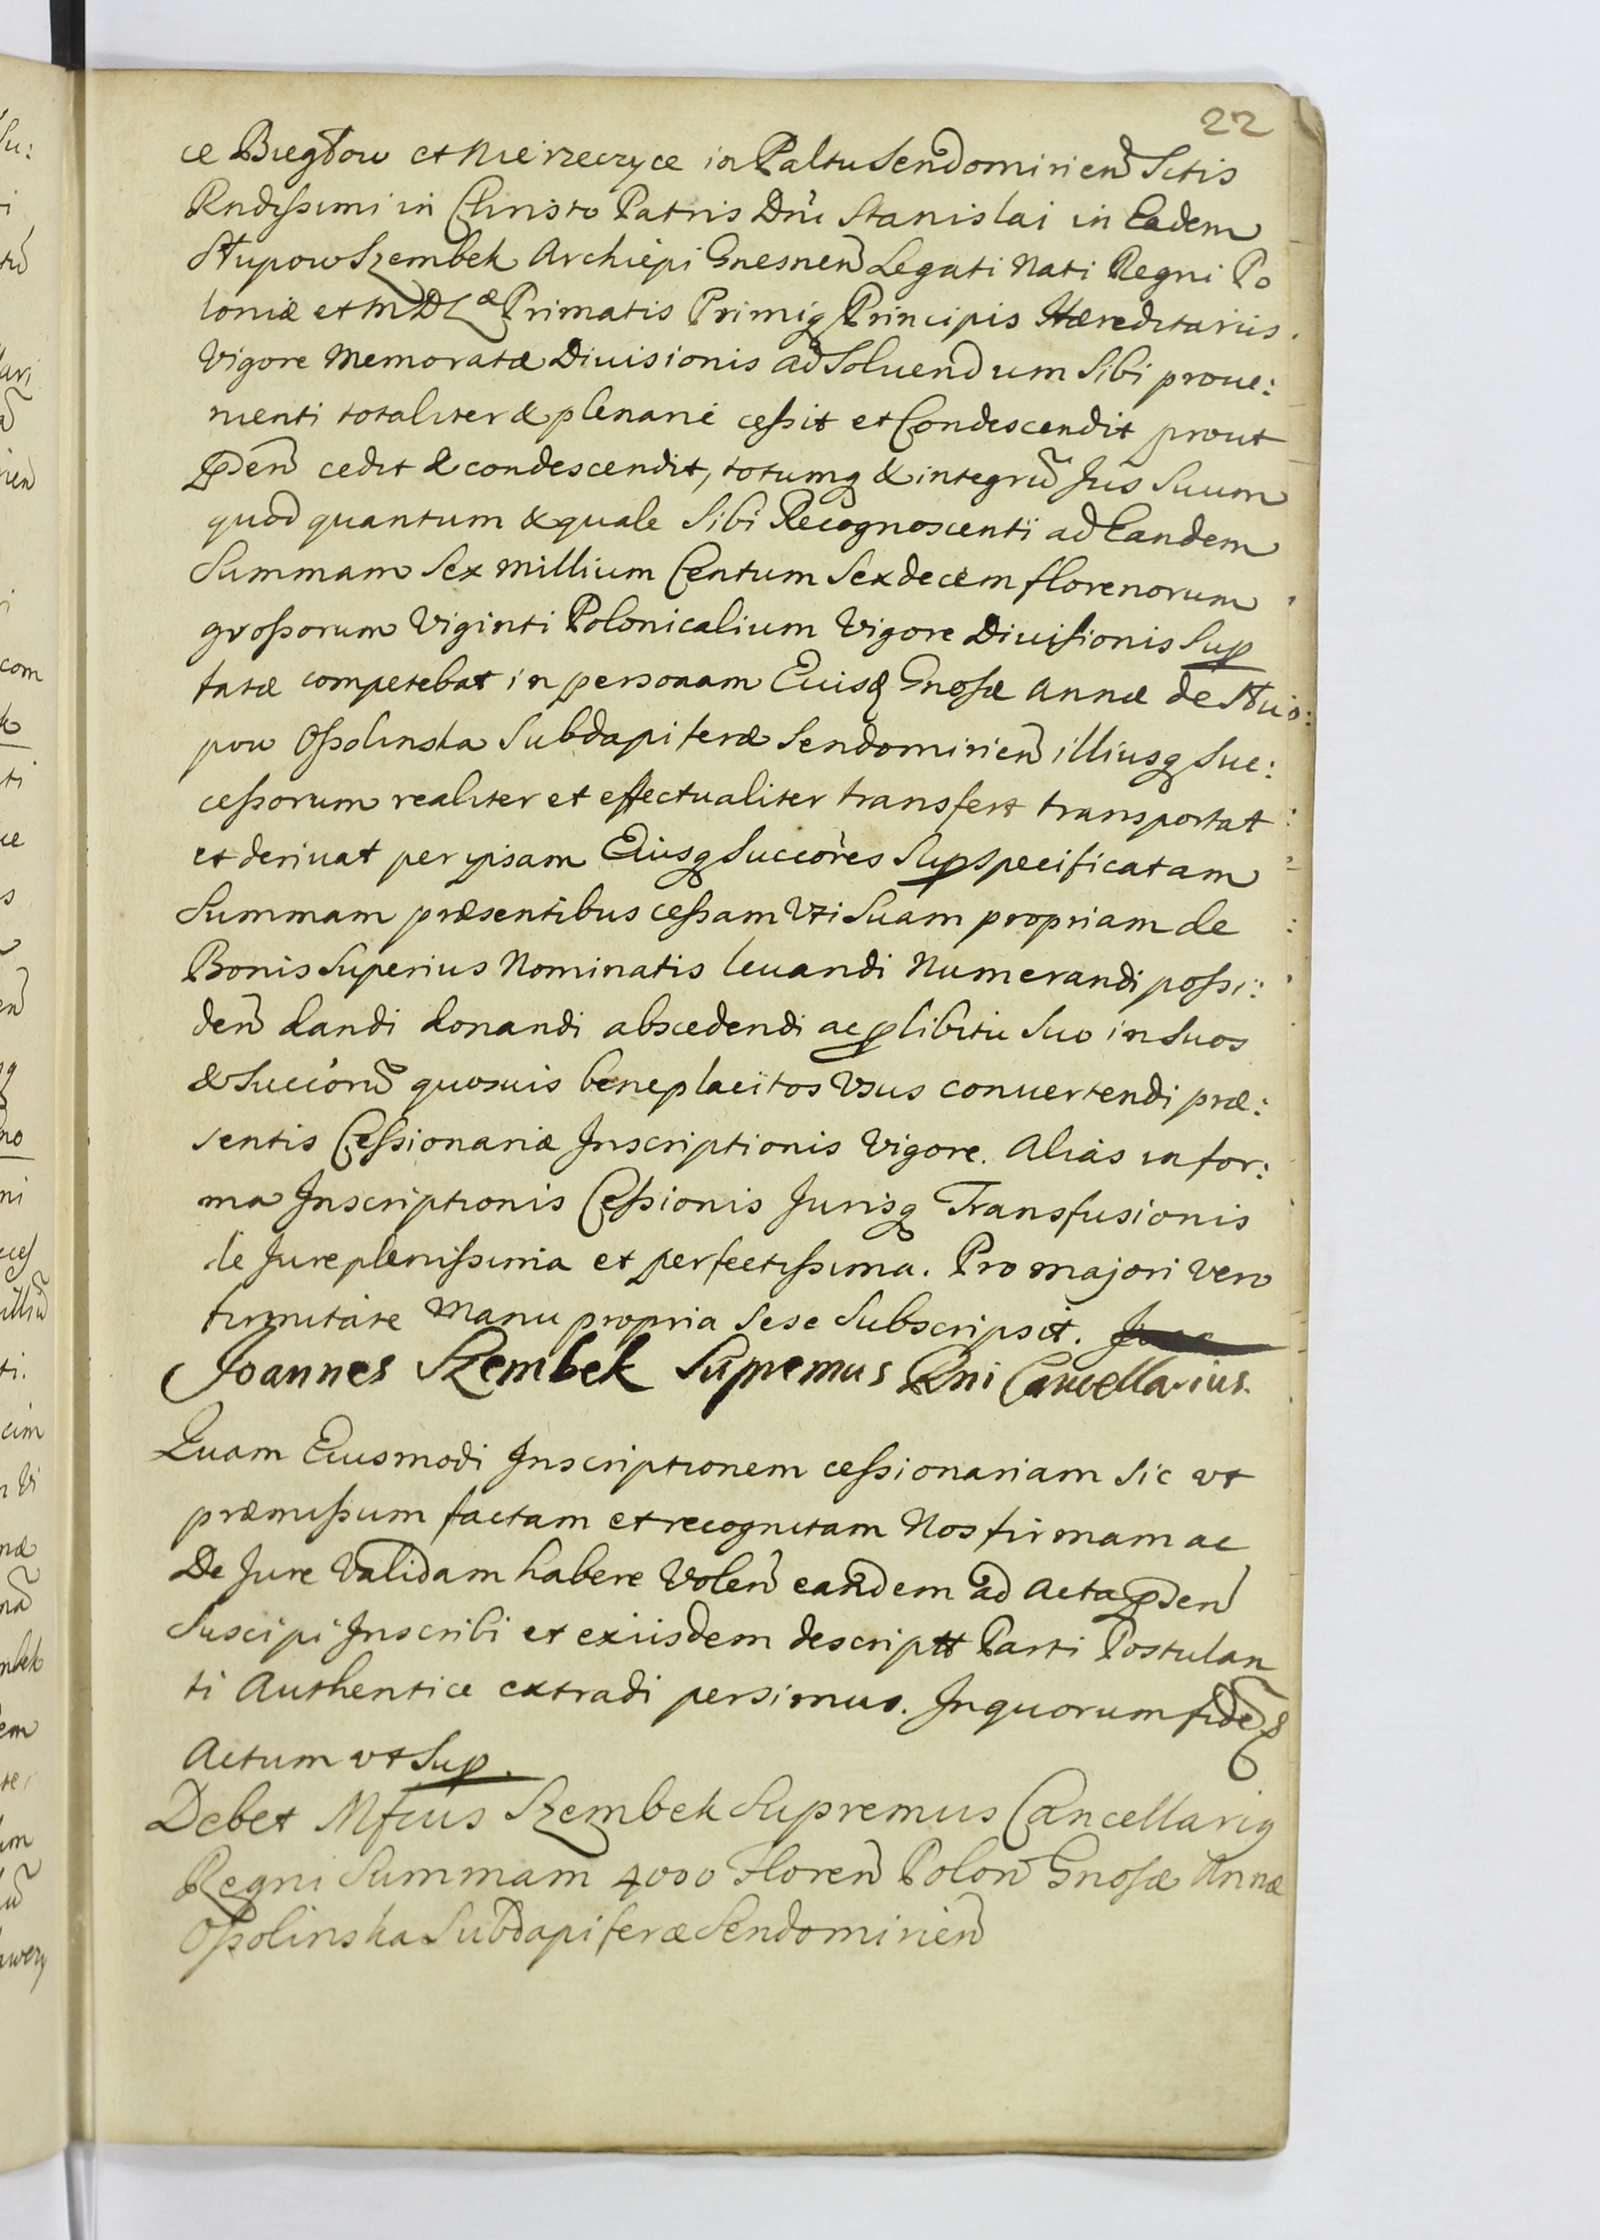 22
ce Biegłow et Mierzeczyce in Paltu Sendomirien̄ Sitis
Rndissimi in Christo Patris Dni Stanislai in Eadem
Słupow Szembek Archiepi Gnesnen̄ Legati Nati Regni Po
loniæ et M D L æ Primatis Primiq Principis Hæreditariis
Vigore Memoratæ Divisionis ad Soluendum Sibi proue:
nienti totaliter & plenarie cessit et Condescendit prout
pden̄ cedit & condescendit, totumq & integrū Jus Suum
quod quantum & quale Sibi Recognoscenti ad Eandem
Summam Sex Millium Centum Sexdecem florenorum
grossorum Viginti Polonicalium Vigore Diuisionis Sup
tatæ competebat in personam Eiusd Gnosæ Annæ de Słu:
pow Ossolinska Subdapiferæ Sendomirien̄ illiusq Suc:
cessorum realiter et effectualiter transfert transportat
et deriuat per ipsam Eiusq Succores Sup specificatam
Summam præsentibus cessam Vti Suam propriam de
Bonis Superius Nominatis leuandi Numerandi possi:
den̄ dandi donandi abscedendi ac p libitu Suo in Suos
& Succorū quosuis beneplacitos Vsus conuertendi præ:
sentis Cessionariæ Inscriptionis Vigore. Alias in for:
ma Inscriptionis Cessionis Jurisq Transfusionis
de Jure plenissima et perfectissima. Pro majori vero
firmitate Manu propria Sese Subscripsit.
Joannes Szembek Supremus Rni Cancellarius.
Quam Eiusmodi Inscriptionem cessionariam Sic vt
præmissum factam et recognitam Nos firmam ac
De Jure Validam habere Volen̄ eandem ad Acta pden̄
Suscipi Inscribi et exiisdem descriptt Parti Postulan
ti Authentice extradi persimus. In quorum fidē &
Actum vt Sup.
Debet Mfcus Szembek Supremus Cancellariq
Regni Summam 4000 Floren̄ Polon̄ Gnosæ Annæ
Ossolinska Subdapiferæ Sendomirien̄